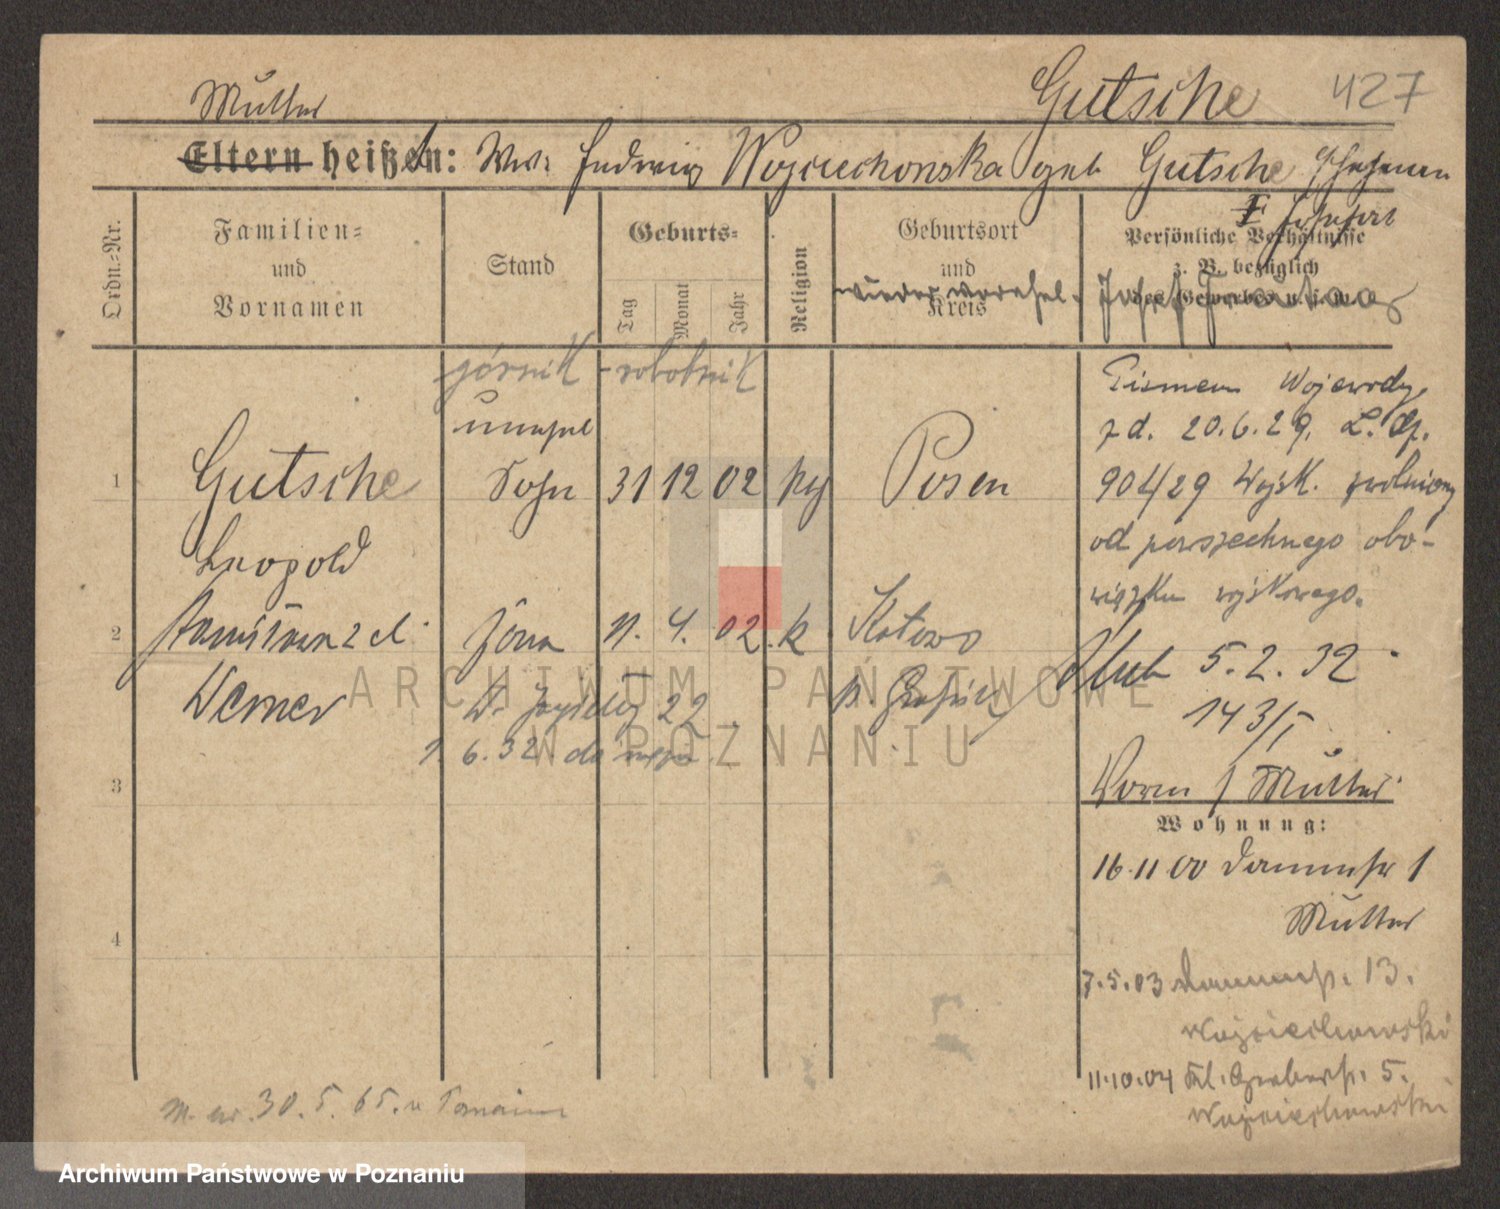 Mutter
Gutsche 427
Eltern heißen: Ww. Ludwig Wojciechowska geb Gutsche
Ordn.-Nr.
Familien-
und
Vornamen
Stand
Geburts-
Tag
Monat
Jahr
Religion
Geburtsort
und
Kreis
wieder verehel.
Persönliche Verhältnisse
z. B. bezüglich
des Gewerbes u.s.w.
górnik - robotnik
unehel
1 Gutsche Sohn 31 12 02 Posen
Leopold
2 żona 11. 4. 02 k Kotowo
Werner
22
1. 6. 32 do męża
3
4
Pismem Wojewody
z d. 20.6.29. L. dz.
904/29 Wojsk. zwolniony
od powszechnego obo-
wiązku wojskowego.
ślub 5. 2. 32
143/I
Mutter
Wohnung:
16.11 00 Dammstr 1
Mutter
7.5.03 Dammstr. 13.
Wojciechowski
11.10.04 Kl. Gerberstr. 5.
Wojciechowski
30. 5. 65. w Poznaniu
ARCHIWUM PAŃSTWOWE
W POZNANIU
Archiwum Państwowe w Poznaniu